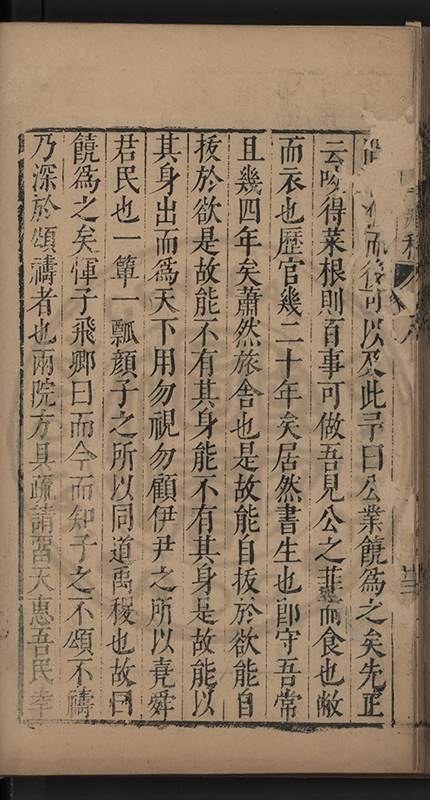 而後可以及此予曰公業饒為之矣先正
云咬得菜根則百事可做吾見公之菲而食也敝
而衣也歷官幾二十年矣居然書生也即守吾常
且幾四年矣蕭然旅舍也是故能自拔於欲能自
拔於欲是故能不有其身能不有其身是故能以
其身出而為天下用勿視勿顧伊尹之所以堯舜
君民也一簞一瓢顏子之所以同道禹稷也故曰
饒為之矣惲子飛卿曰而今而知子之不頌不禱
乃深於頌禱者也兩院方具疏請畱大惠吾民幸